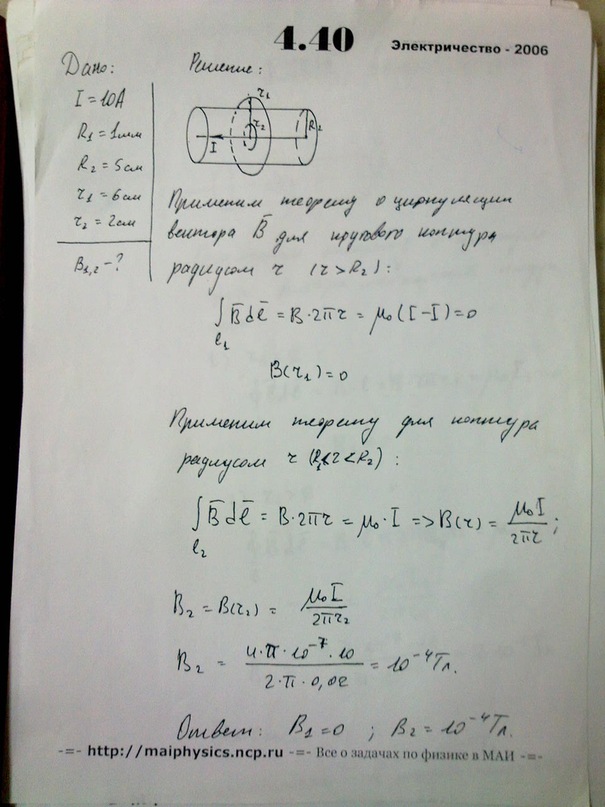 4.40
Электричество - 2006
Дано:
I = 10А
R₁ = 1мм
R₂ = 5см
r₁ = 6см
r₂ = 2см
B₁,₂ - ?
Решение:
r₁
r₂
R₂
I
Применим теорему о циркуляции
вектора B̄ для кругового контура
радиусом r (r > R₂):
∫ B̄dl̄ = B·2πr = μ₀(I-I) = 0
l₁
B(r₁) = 0
Применим теорему для контура
радиусом r (R₁<r<R₂):
∫ B̄dl̄ = B·2πr = μ₀·I => B(r) = μ₀I / 2πr ;
l₂
B₂ = B(r₂) = μ₀I / 2πr₂
B₂ = 4·π·10⁻⁷·10 / 2·π·0,02 = 10⁻⁴Тл.
Ответ: B₁=0 ; B₂ = 10⁻⁴Тл.
-=- http://maiphysics.ncp.ru -=- Все о задачах по физике в МАИ -=-